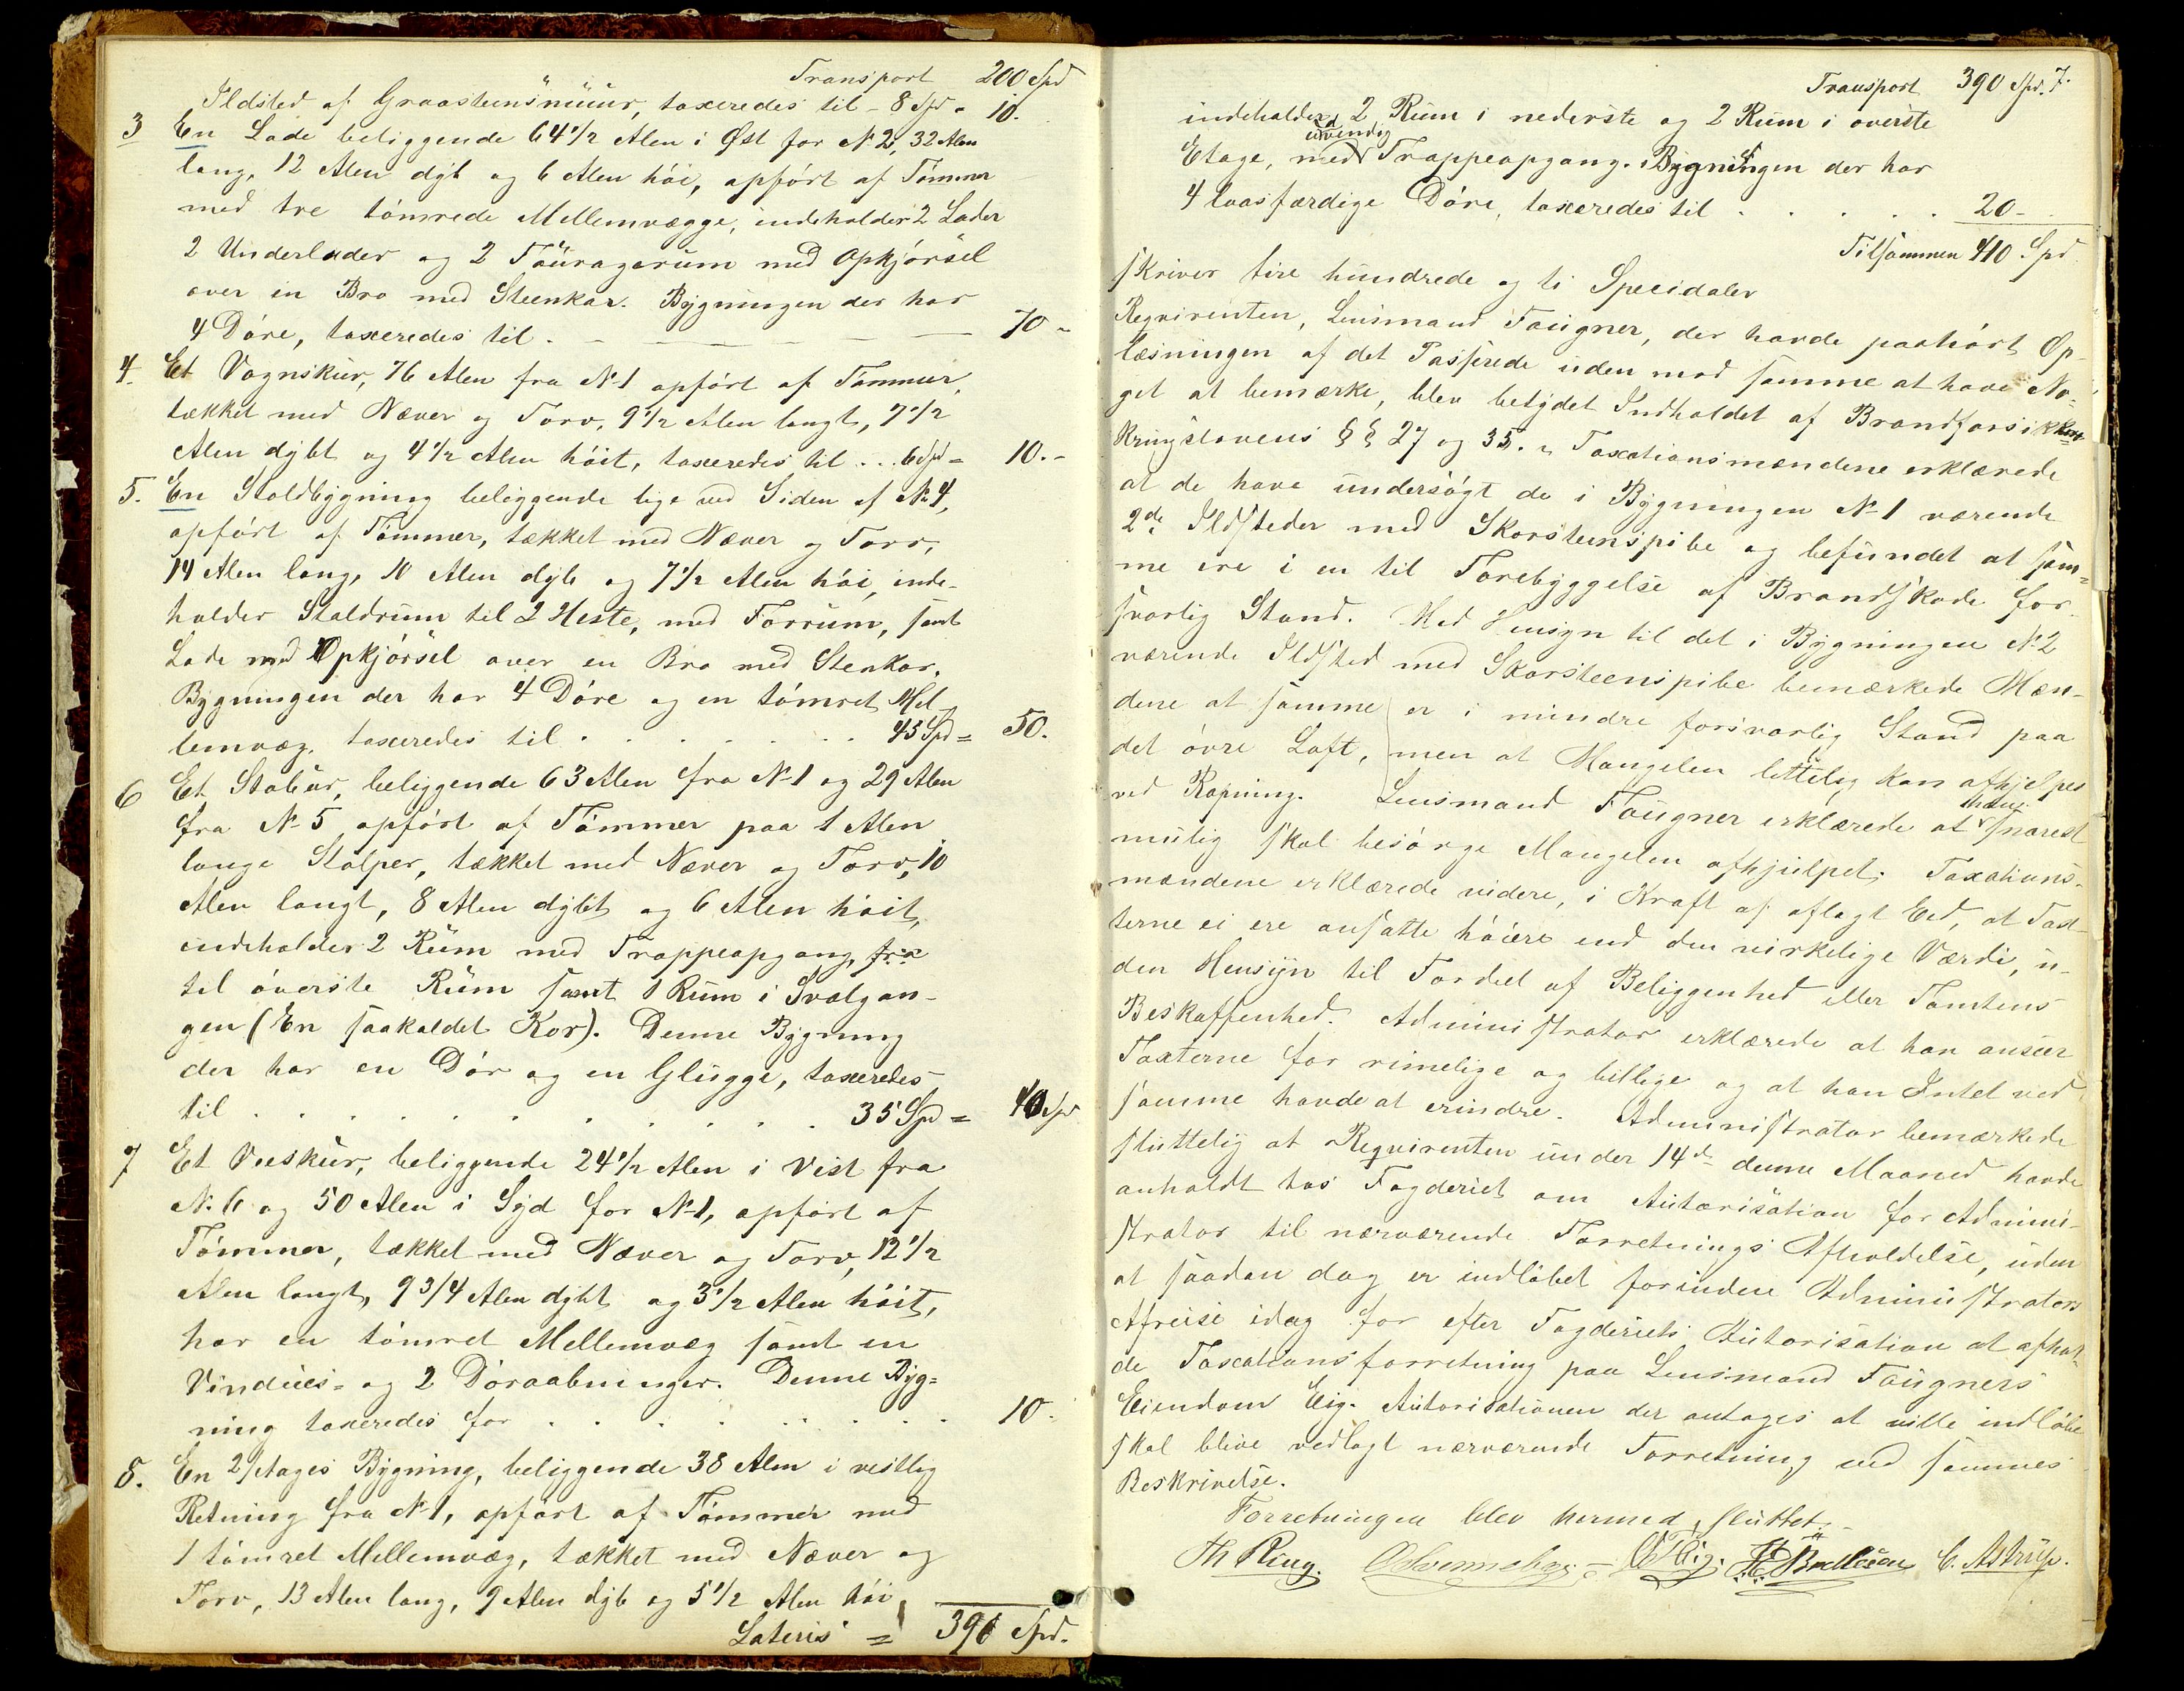 Transport 200 Spd
Ildsted af Graasteensmuur, taxeredes til - 8 Spd = 10.
3 En Lade beliggende 64 1/2 Alen i Øst for No 2, 32 Alen
lang, 12 Alen dyb og 6 Alen høi, opført af Tømmer
med tre tømrede Mellemvægge, indeholder 2 Lader
2 Underlader og 2 Fouragerum med Opkjørsel
over en Bro med Steenkar. Bygningen der har
4 Døre, taxeredes til . - 70 -
4. Et Vognskur, 76 Alen fra No 1 opført af Tømmer,
tækket med Næver og Torv, 9 1/2 Alen langt, 7 1/2
Alen dybt og 4 1/2 Alen høit, taxeredes til ... 6 Spd = 10. -
5. En Staldbygning beliggende lige ved Siden af No 4,
opført af Tømmer, tækket med Næver og Torv,
14 Alen lang, 10 Alen dyb og 7 1/2 Alen høi, inde-
holder Staldrum til 2 Heste, med Forrum, samt
Lade med Opkjørsel over en Bro med Stenkar.
Bygningen der har 4 Døre og en tømret Mel-
lemvæg, taxeredes til . . . . . . . 45 Spd = 50.
6 Et Stabur, beliggende 63 Alen fra No 1 og 29 Alen
fra No 5 opført af Tømmer paa 1 Alen
lange Stolper, tækket med Næver og Torv, 10
Alen langt, 8 Alen dybt og 6 Alen høit,
indeholder 2 Rum med Trappeopgang, fra
til øverste Rum samt 1 Rum i Svalgan-
gen (En saakaldet Kor). Denne Bygning
der har en Dør og en Glugge, taxeredes
til . . . . . . . . . . . 35 Spd = 40 Spd
7 Et Veeskur, beliggende 24 1/2 Alen i Vest fra
No 6 og 50 Alen i Syd for No 1, opført af
Tømmer, tækket med Næver og Torv, 12 1/2
Alen langt, 9 3/4 Alen dybt og 3 1/2 Alen høit,
har en tømret Mellemvæg samt en
Vindues- og 2 Døraabninger. Denne Byg=
ning taxeredes for . . . . . . . . 10.
8. En 2 Etages Bygning, beliggende 38 Alen i vestlig
Retning fra No 1, opført af Tømmer med
1 tømret Mellemvæg, tækket med Næver og
Torv, 13 Alen lang, 9 Alen dyb og 5 1/2 Alen høi,
Lateris = 390 Spd.
Transport 390 Spd. 7.
indeholder 2 Rum i nederste og 2 Rum i øverste
udvendig
Etage, med Trappeopgang. i Bygningen der har
4 laasfærdige Døre, taxeredes til . . . . . 20 -
Tilsammen 410 Spd.
skriver fire hundrede og ti Speciedaler
Reqvirenten, Lensmand Faugner, der havde paahørt Op-
læsningen af det Passerede uden mod samme at have No-
get at bemærke, blev betydet Indholdet af Brandforsik
kringslovens §§ 27 og 35. Taxationsmændene erklærede
at de have undersøgt de i Bygningen No 1 værende
2de Ildsteder med Skorsteenspibe og befundet at sam=
me ere i en til Forebyggelse af Brandskade for-
svarlig Stand. Med Hensyn til det i Bygningen No 2
værende Ildsted med Skorsteenspibe bemærkede Mæn-
dene at samme er i mindre forsvarlig Stand paa
det øvre Loft, men at Mangelen lettelig kan afhjelpes
han
ved Rapning. Lensmand Faugner erklærede at snarest
mulig skal besørge Mangelen afhjulpet. Taxations-
mændene erklærede videre, i Kraft af aflagt Eed, at Tax-
terne ei ere ansatte høiere end den virkelige Værdi, u-
den Hensyn til Fordeel af Beliggenhed eller Tomtens
Beskaffenhed. Administrator erklærede at han anseer
Taxterne for rimelige og billige og at han Intet ved
samme havde at erindre. Administrator bemærkede
sluttelig at Reqvirenten under 14de denne Maaned havde
anholdt hos Fogderiet om Autorisation for Admini-
strator til nærværende Forretnings Afholdelse, uden
at saadan dog er indløbet forinden Administrators
Afreise idag for efter Fogderiets Autorisation at afhol-
de Taxationsforretning paa Lensmand Faugners
Eiendom Eig. Autorisationen der antages at ville indløbe
skal blive vedlagt nærværende Forretning ved sammes
Beskrivelse.
Forretningen blev hermed sluttet.
Th Ring. C. Astrup.